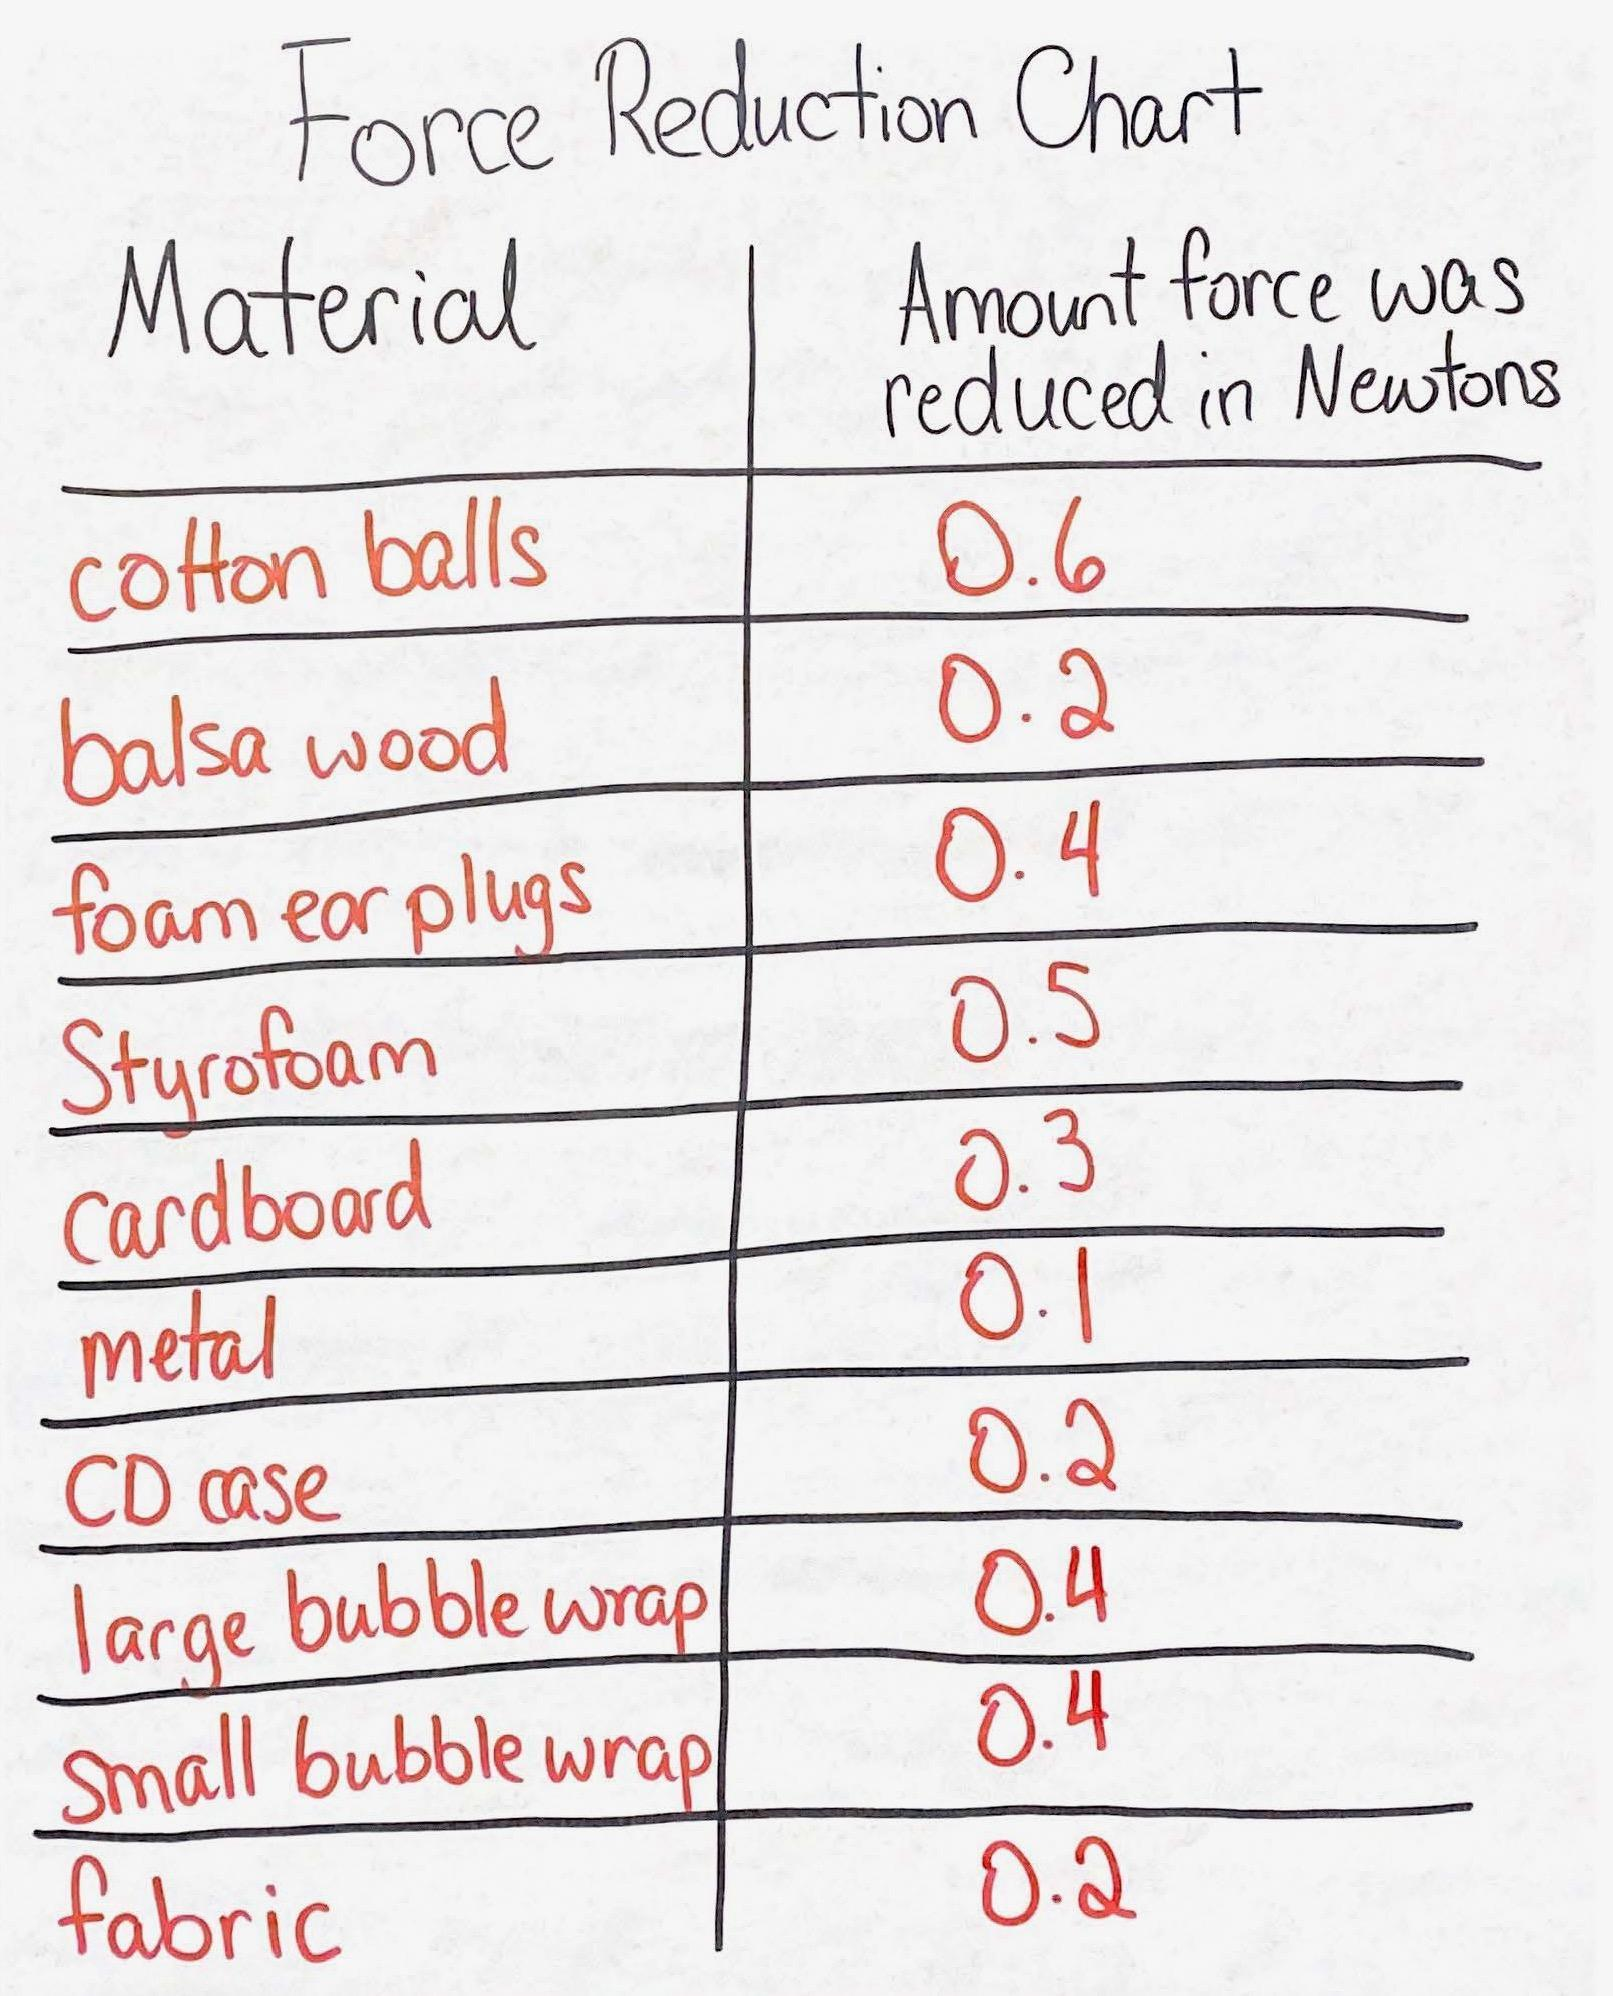 Force Reduction Chart
Material
Amount force was
reduced in Newtons
cotton balls 0.6
balsa wood 0.2
foam ear plugs 0.4
Styrofoam 0.5
cardboard 0.3
metal 0.1
CD case 0.2
large bubble wrap 0.4
small bubble wrap 0.4
fabric 0.2